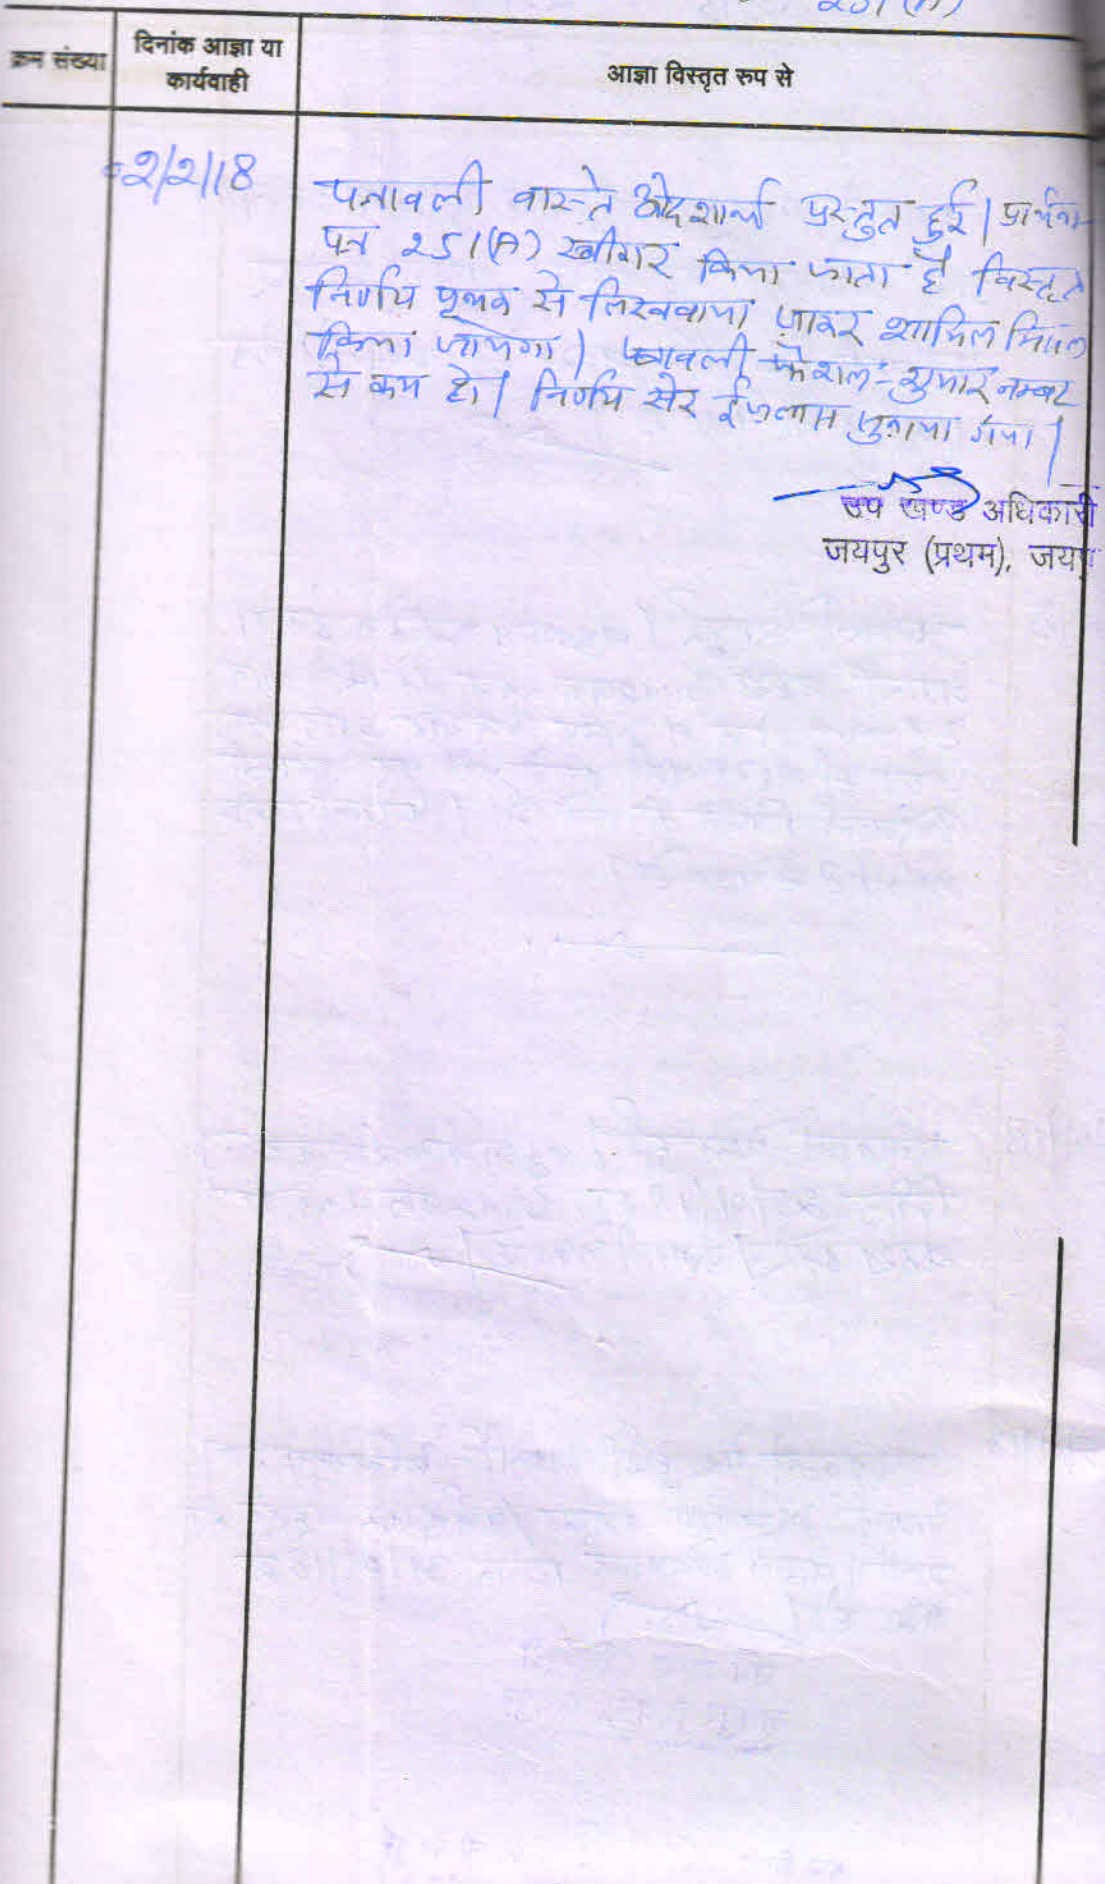 251(A)
क्रम संख्या
दिनांक आज्ञा या
कार्यवाही
आज्ञा विस्तृत रूप से
2/2/18
पत्रावली वास्ते आदेशार्थ प्रस्तुत हुई। प्रार्थना
पत्र 251(A) स्वीकार किया जाता है विस्तृत
निर्णय पृथक से लिखवाया जाकर शामिल मिसल
किया जायेगा। पत्रावली फैशल शुमार नम्बर
से कम हो। निर्णय सरे ईजलास सुनाया गया।
उप खण्ड अधिकारी
जयपुर (प्रथम), जयपु